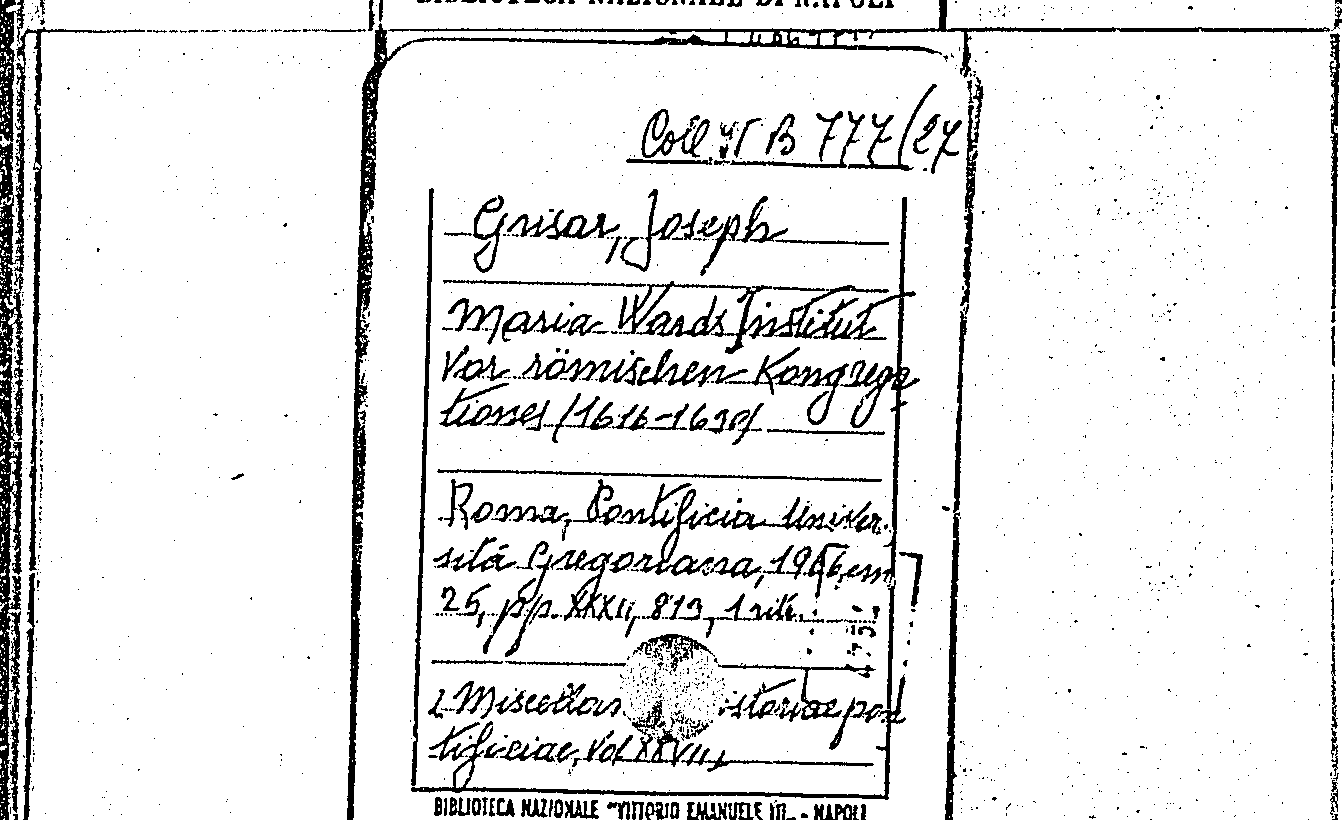 BIBLIOTECA NAZIONALE DI NAPOLI
Coll. VI B 777/27
Grisar, Joseph
Maria Wards Institut
vor römischen Kongrega
tionen (1616-1630)
Roma, Pontificia Univer.
sità Gregoriana, 1966, cm
25, pp. XXXII, 813, 1 ritr.
(Miscellan istoriae pon
tificiae, Vol XXVII)
BIBLIOTECA NAZIONALE "VITTORIO EMANUELE III" - NAPOLI